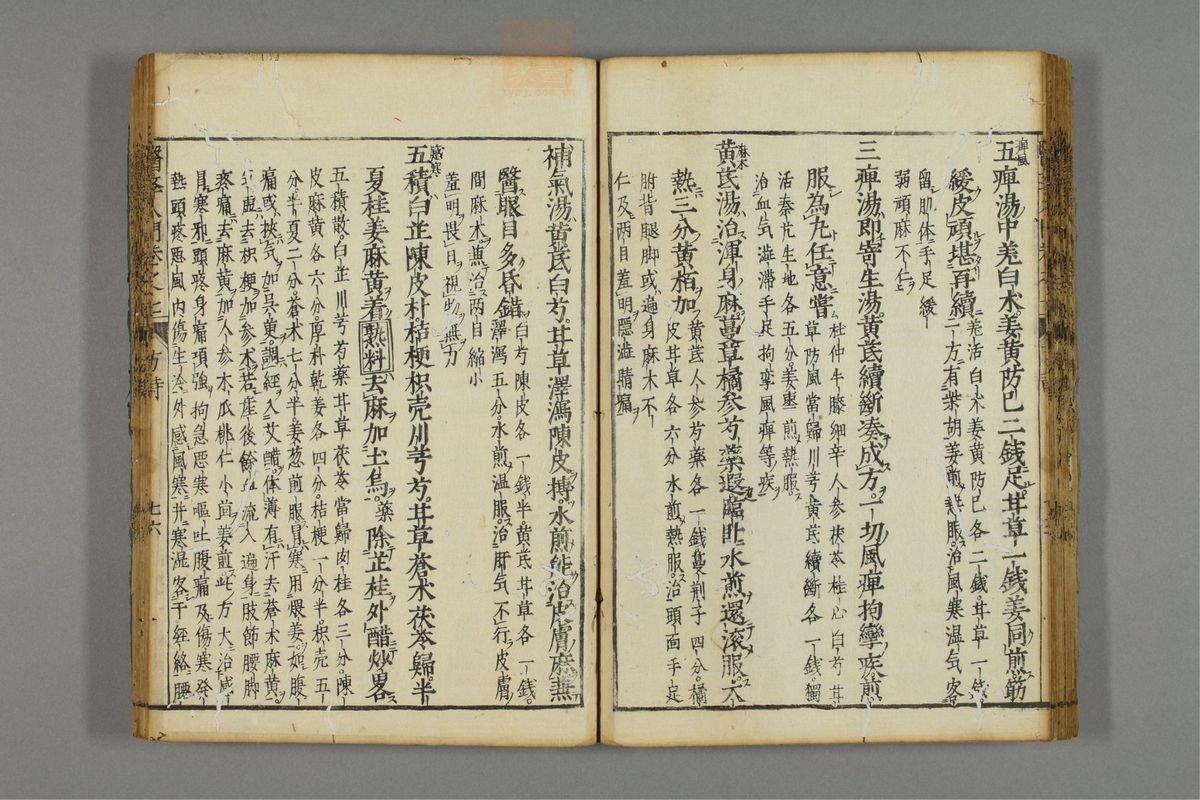 痺風
五痺湯中羌白朮姜黄防已二銭足甘草一銭姜同煎筋
緩皮頑堪再續
一方有柴胡姜煎熱服治風寒温気客
留肌体手足緩
弱頑麻不仁
三痺湯即寄生湯黄芪續断凑成方一切風痺拘攣疾煎
服為丸任意嘗
杜仲牛膝細辛人参茯苓桂心白芍甘
草防風當歸川芎黄芪續断各一銭獨
活秦艽生地各五分姜棗煎熱服
治血気澁滞手足拘攣風痺等疾
麻木
黄芪湯治渾身麻蔓草橘参芍藥遐臨卧水煎還滚服大
熱三分黄栢加
黄芪人参芍藥各一銭蔓荆子四分橘
皮甘草各六分水煎熱服治頭面手足
胕背腿脚或遍身麻木不
仁及両目羞明隠澁睛痛
補氣湯黄芪白芍甘草澤瀉陳皮搏水煎能治皮膚麻兼
醫眼目多昏錯
白芍陳皮各一銭半黄芪甘草各一銭
澤瀉五分水煎温服治肝気不行皮膚
間麻木兼治両目縮小
羞明畏日視物無力
感寒
五積白芷陳皮朴桔梗枳壳川芎芍甘草蒼朮茯苓歸半
夏桂姜麻黄着熟料去麻加土烏藥除芷桂外醋炒畧
五積散白芷川芎芍藥甘草茯苓當歸肉桂各三分陳
皮麻黄各六分厚朴乾姜各四分桔梗一分半枳壳五
分半夏二分蒼朮七分半姜葱煎服冒寒用煨姜如腹
痛或挾気加呉茱調經入艾醋体薄有汗去蒼朮麻黄
疼痛去麻黄加人参木瓜桃仁小茴姜煎此方大治感
冒寒邪頭疼身痛項強拘急悪寒嘔吐腹痛及傷寒発
熱頭疼悪風内傷生冷外感風寒并寒湿客于経絡腰
方詩
七六